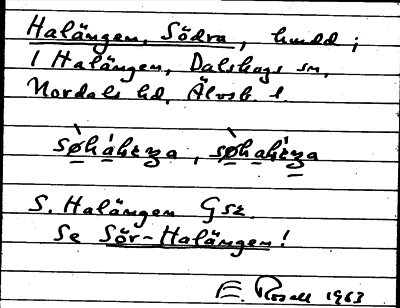 Halängen, Södra, hmdd;
I Halängen, Dalskogs sn,
Nordals hd, Älvsb. l.
S. Halängen Gsz.
Se Sör-Halängen!
E. Rosell 1963